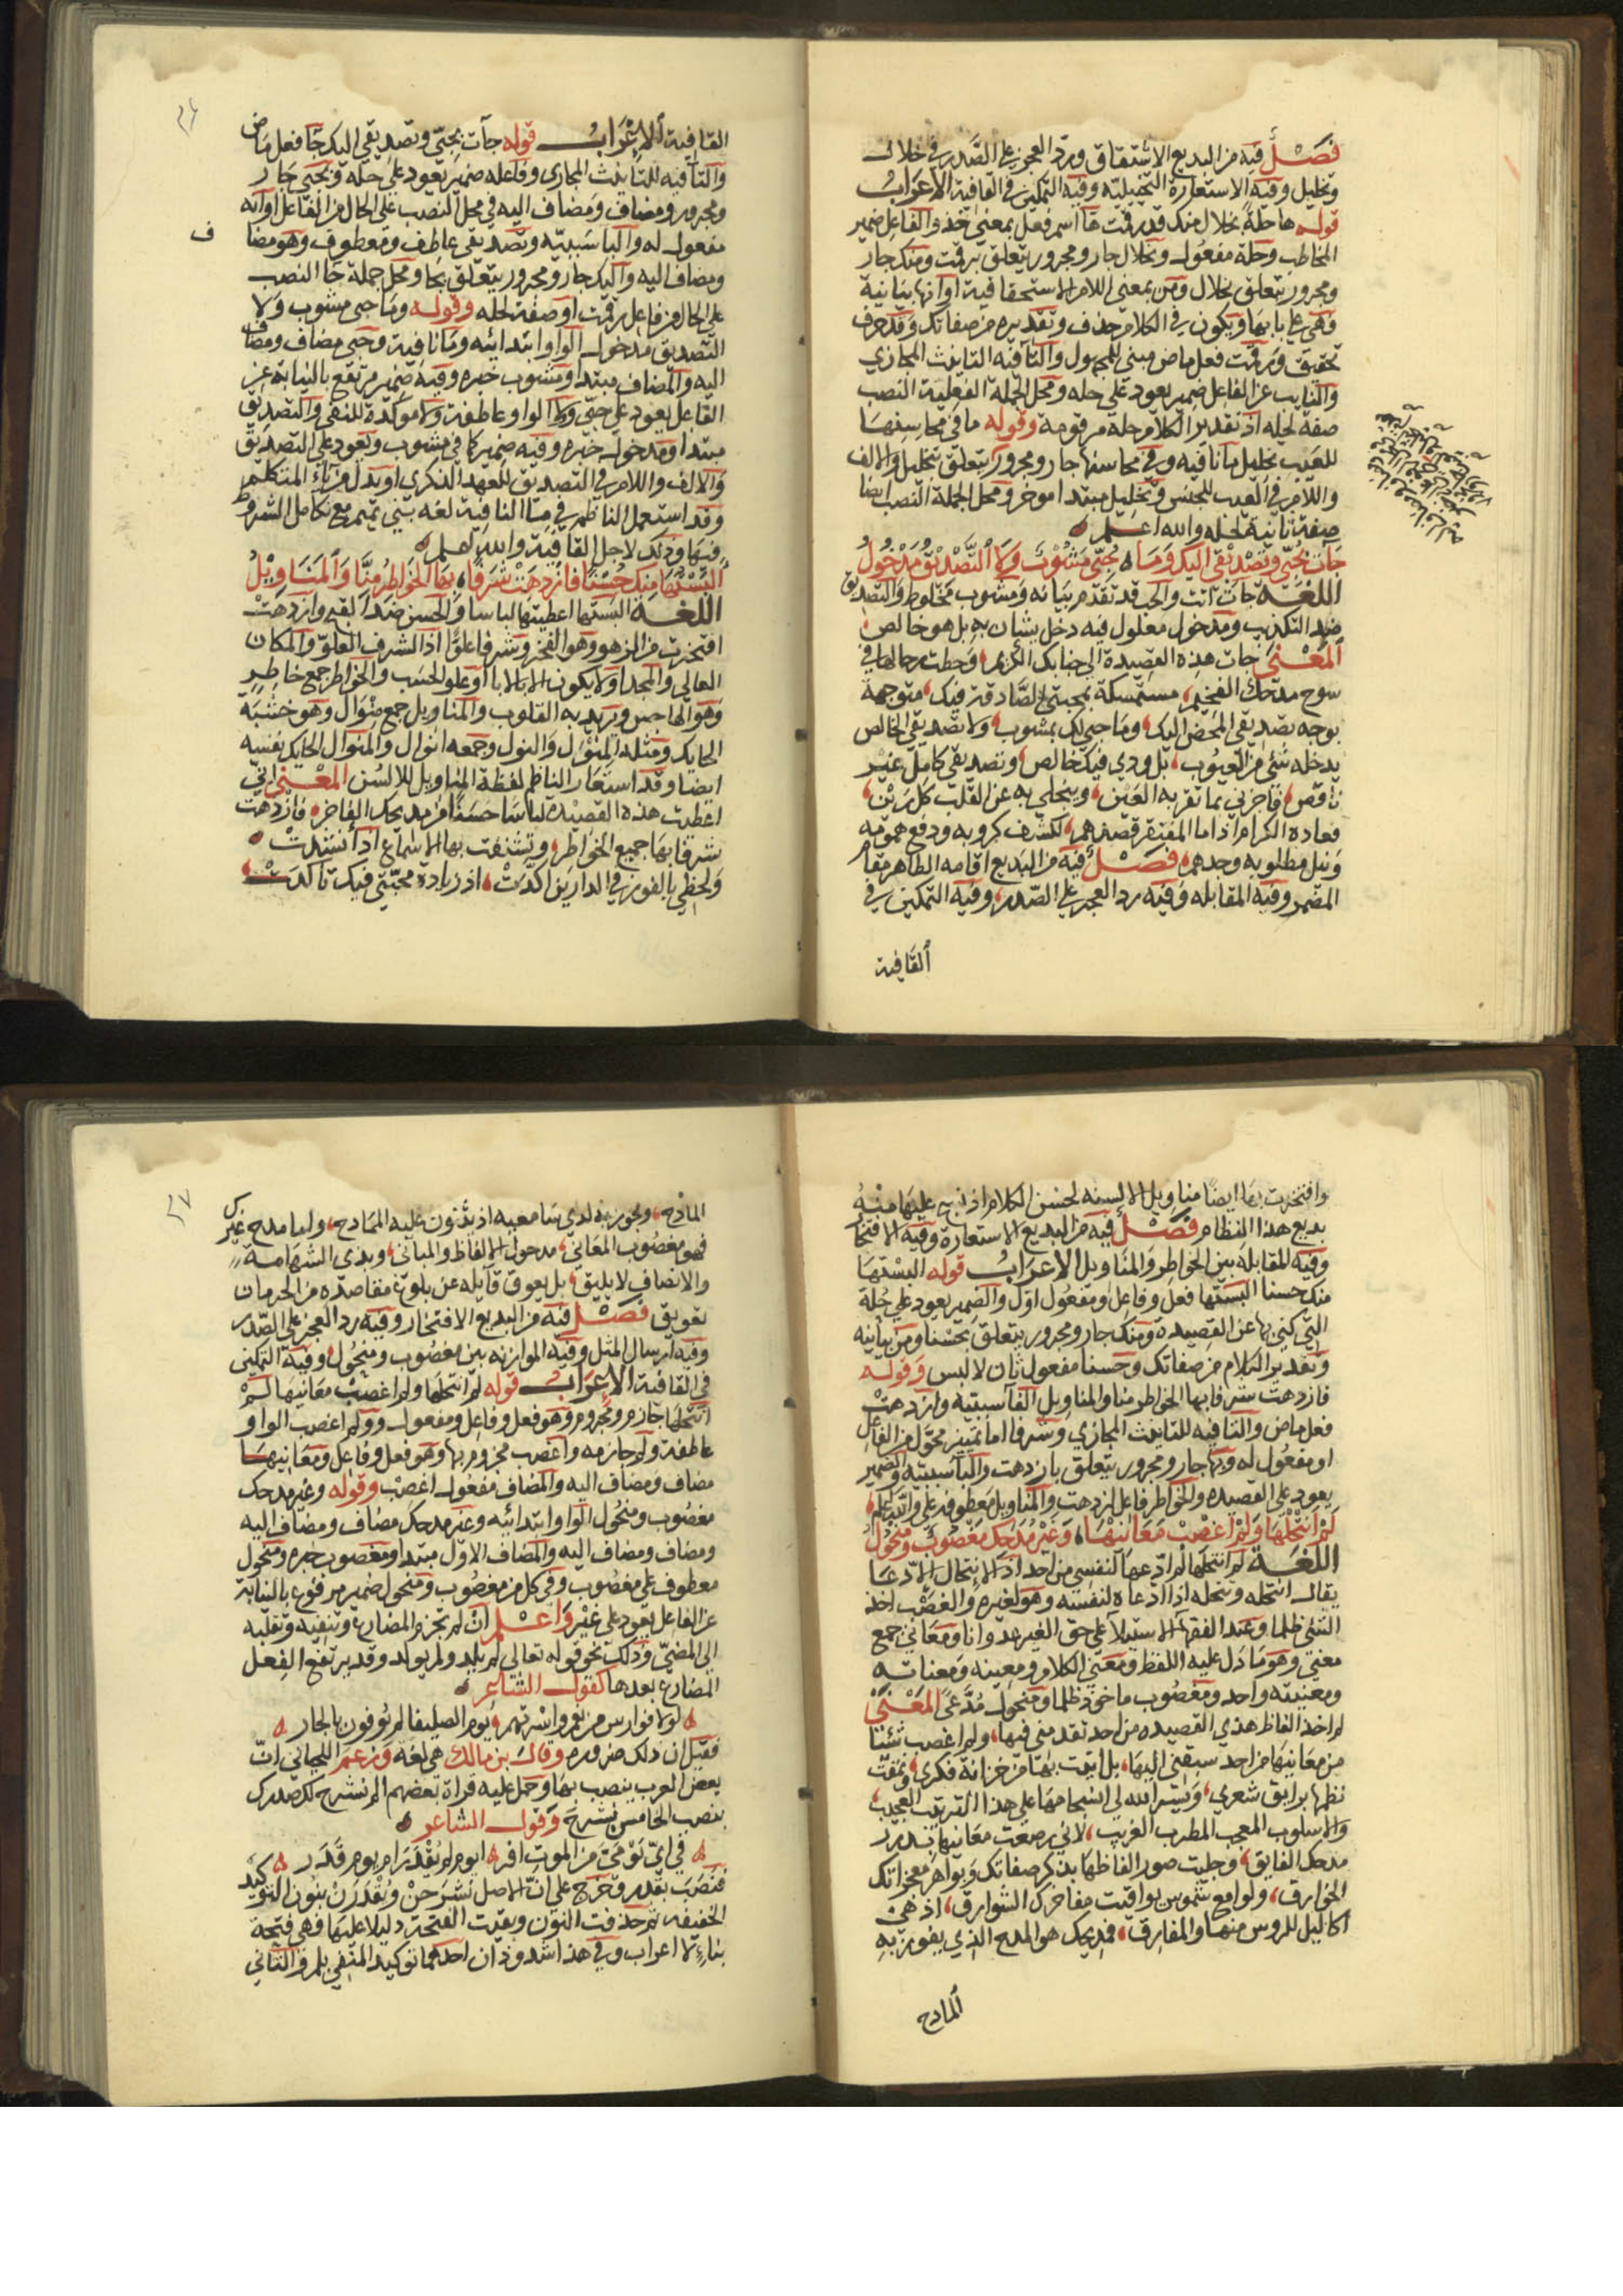 فصل فيه من البديع الاشتقاق ورد العجز على الصدر في خلال
وتخليل وفيه الاستعارة التخييليه وفيه التمكين في القافية الاعراب
قوله ها حلة بخلال منك قد رقمت ها اسم فعل بمعنى خذ والفاعل ضمير
المخاطب وحلة مفعول وبخلال جار ومجرور يتعلق برقمت ومنك جار
ومجرور يتعلق بخلال ومن بمعنى اللام الاستحقاقية او انها بيانية
وهي على بابها ويكون في الكلام حذف وتقديره من صفاتك وقد حرف
تحقيق ورقمت فعل ماض مبني للمجهول والتا فيه التانيث المجازي
والنايب عن الفاعل ضمير يعود على حله ومحل الجملة الفعلية النصب
صفة لحله اذ تقدير الكلام حلة مرقومة وقوله ما في محاسنها
للعيب تخليل ما نافيه وفي محاسنها جار ومجرور يتعلق بتخليل والالف
واللام في العيب للجنس وتخليل مبتدا موخر ومحل الجملة النصب ايضا
صفة ثانية لحله والله اعلم
جات بحبي وتصديقي اليك وما حبي مشوب ولا التصديق مدخول
اللغة جات اتت والحب قد تقدم بيانه ومشوب مخلوط والتصديق
ضد التكذيب ومدخول معلول فيه دخل بشيان به بل هو خالص
المعنى جات هذه القصيدة الى جنابك الكريم وحطت رحالها في
سوح مدحك الفخيم مستمسكة بمحبتي الصادقة فيك متوجهة
بوجه تصديقي المحض اليك وما حبي لك بمشوب ولا تصديقي الخالص
يدخله شئ من العيوب بل ودي فيك خالص وتصديقي كامل غير
ناقص فاجزني بما تقر به العين وينجلي به عن القلب كل رين
فعادة الكرام اذا ما المفتقر قصدهم لكشف كروبه ودفع همومه
ونيل مطلوبه وجدهم فصل فيه من البديع اقامه الظاهر مقام
المضمر وفيه المقابله وفيه رد العجز على الصدر وفيه التمكين في
القافية
القافية الاعراب قوله جآت بحبي وتصديقي اليك جا فعل ماض
والتا فيه للتانيث المجازي وفاعله ضمير يعود على حله وبحبي جار
ومجرور ومضاف ومضاف اليه في محل النصب على الحال من الفاعل او انه
مفعول له والبا سببيه وتصديقي عاطف ومعطوف وهو مضا ف
ومضاف اليه واليك جار ومجرور يتعلق بجا ومحل جملة جا النصب
على الحال من فاعل رقمت او صفة لحله وقوله وما حبي مشوب ولا
التصديق مدخول الواو ابتدائيه وما نافية وحبي مضاف ومضاف
اليه والمضاف مبتدا ومشوب خبره وفيه ضمير مرتفع بالنيابة عن
الفاعل يعود على حبي ولا الواو عاطفة ولا موكدة للنفي والتصديق
مبتدا ومدخول خبره وفيه ضمير كما في مشوب ويعود على التصديق
والالف واللام في التصديق للعهد الذكري او بدل من ياء المتكلم
وقد استعمل الناظم في ما النافية لغة بني تميم مع تكامل الشروط
فيها وذلك لاجل القافية والله اعلم
البستها منك حسنا فازدهت شرفا بها الخواطر منا والمناويل
اللغة البستها اعطيتها لباسا والحسن ضد القبح وازدهت
افتخرت من الزهو وهو الفخر وشرفا علوا اذ الشرف العلو والمكان
العالي والمجد او لا يكون الا بالابا او علو الحسب والخواطر جمع خاطر
وهو الهاجس ويريد به القلوب والمناويل جمع منوال وهو خشبة
الحايك ومثله المنول والنول وجمعه انوال والمنوال الحايك نفسه
ايضا وقد استعار الناظم لفظة المناويل للالسن المعنى اني
اعطيت هذه القصيدة لباسا حسنا من مديحك الفاخر فازدهت
شرفا بها جميع الخواطر وتشنفت بها الاسماع اذا نشدت
ولحظي بالفوز في الدارين اكدت اذ زيادة محبتي فيك تاكدت
وافتخرت بها ايضا مناويل الالسنه لحسن الكلام اذ نسج عليها منه
بديع هذا النظام فصل فيه من البديع الاستعارة وفيه الافتخار
وفيه المقابله بين الخواطر والمناويل الاعراب قوله البستها
منك حسنا البستها فعل وفاعل ومفعول اول والضمير يعود على حلة
التي كني بها عن القصيدة ومنك جار ومجرور يتعلق بحسنا ومن بيانيه
وتقدير الكلام من صفاتك وحسنا مفعول ثان لالبس وقوله
فازدهت شرفا بها الخواطر منا والمناويل الفا سببيه وازدهت
فعل ماض والتا فيه للتانيث المجازي وشرفا اما تمييز محول من الفاعل
او مفعول له وبها جار ومجرور يتعلق بازدهت والبا سببيه والضمير
يعود على القصيده والخواطر فاعل ازدهت والمناويل معطوفه على والله اعلم
لم انتحلها ولم اغصب معانيها وغير مدحك مغصوب ومنحول
اللغة لم انتحلها لم ادعها لنفسي من احد اذ الانتحال الادعا
يقال انتحله وتنحله اذا ادعاه لنفسه وهو لغيره والغصب اخذ
الشئ ظلما وعند الفقها الاستيلا على حق الغير عدوانا ومعاني جمع
معنى وهو ما دل عليه اللفظ ومعنى الكلام ومعينه ومعناته
ومعنيته واحد ومغصوب ماخوذ ظلما ومنحول مدعى المعنى
لم اخذ الفاظ هذي القصيده من احد تقدمني فيها ولم اغصب شيئا
من معانيها من احد سبقني اليها بل اتيت بها من خزانة فكري ونمقت
نظمها برايق شعري ويسر الله لي انسجامها على هذا الترتيب العجيب
والاسلوب المعجب المطرب الغريب لاني رصعت معانيها بدرر
مدحك الفايق وجليت صور الفاظها بذكر صفاتك وبواهر معجزاتك
الخوارق ولوامع شموس يواقيت مفاخرك الشوارق اذ هي
اكاليل للروس منها والمفارق فمديحك هو المدح الذي يفوز به
المادح
المادح ويجوز به لدي سامعيه اذ يثنون عليه المحادح واما مدح غيرك
فهو مغصوب المعاني مدخول الالفاظ والمباني وبذي الشهامة
والانصاف لا يليق بل يعوق قايله عن بلوغ مقاصده من الحرمان
تعويق فصل فيه من البديع الافتخار وفيه رد العجز على الصدر
وفيه ارسال المثل وفيه الموازنه بين مغصوب ومنحول وفيه التمكين
في القافية الاعراب قوله لم انتحلها ولم اغصب معانيها لم
انتحلها جازم ومجزوم وهو فعل وفاعل ومفعول وولم اغصب الواو
عاطفة ولم جازمه واغصب مجزوم بها وهو فعل وفاعل ومعانيها
مضاف ومضاف اليه والمضاف مفعول اغصب وقوله وغير مدحك
مغصوب ومنحول الواو ابتدائيه وغير مدحك مضاف ومضاف اليه
ومضاف ومضاف اليه والمضاف الاول مبتدا ومغصوب خبره ومنحول
معطوف على مغصوب وفي كل من مغصوب ومنحول ضمير مرفوع بالنيابة
عن الفاعل يعود على غير واعلم ان لم تجزم المضارع وتنفيه وتقلبه
الى المضي وذلك نحو قوله تعالى لم يلد ولم يولد وقد يرتفع الفعل
المضارع بعدها كقول الشاعر
لولا فوارس من نعم واسرتهم يوم الصليفا لم يوفون بالجار
فقيل ان ذلك ضروره وقال بن مالك هي لغه وزعم اللحياني ان
بعض العرب ينصب بها وحمل عليه قراة بعضهم الم نشرح لك صدرك
بنصب الحا من نشرح وقول الشاعر
في اي يومي من الموت افر ايوم لم يقدر ام يوم قدر
فنصب يقدر وخرج على ان الاصل نشرحن ويقدرن بنون التوكيد
الخفيفه ثم حذفت النون وبقيت الفتحة دليلا عليها فهي فتحة
بناء لا اعراب وفي هذا شذوذان احدهما توكيد المنفي بلم والثاني